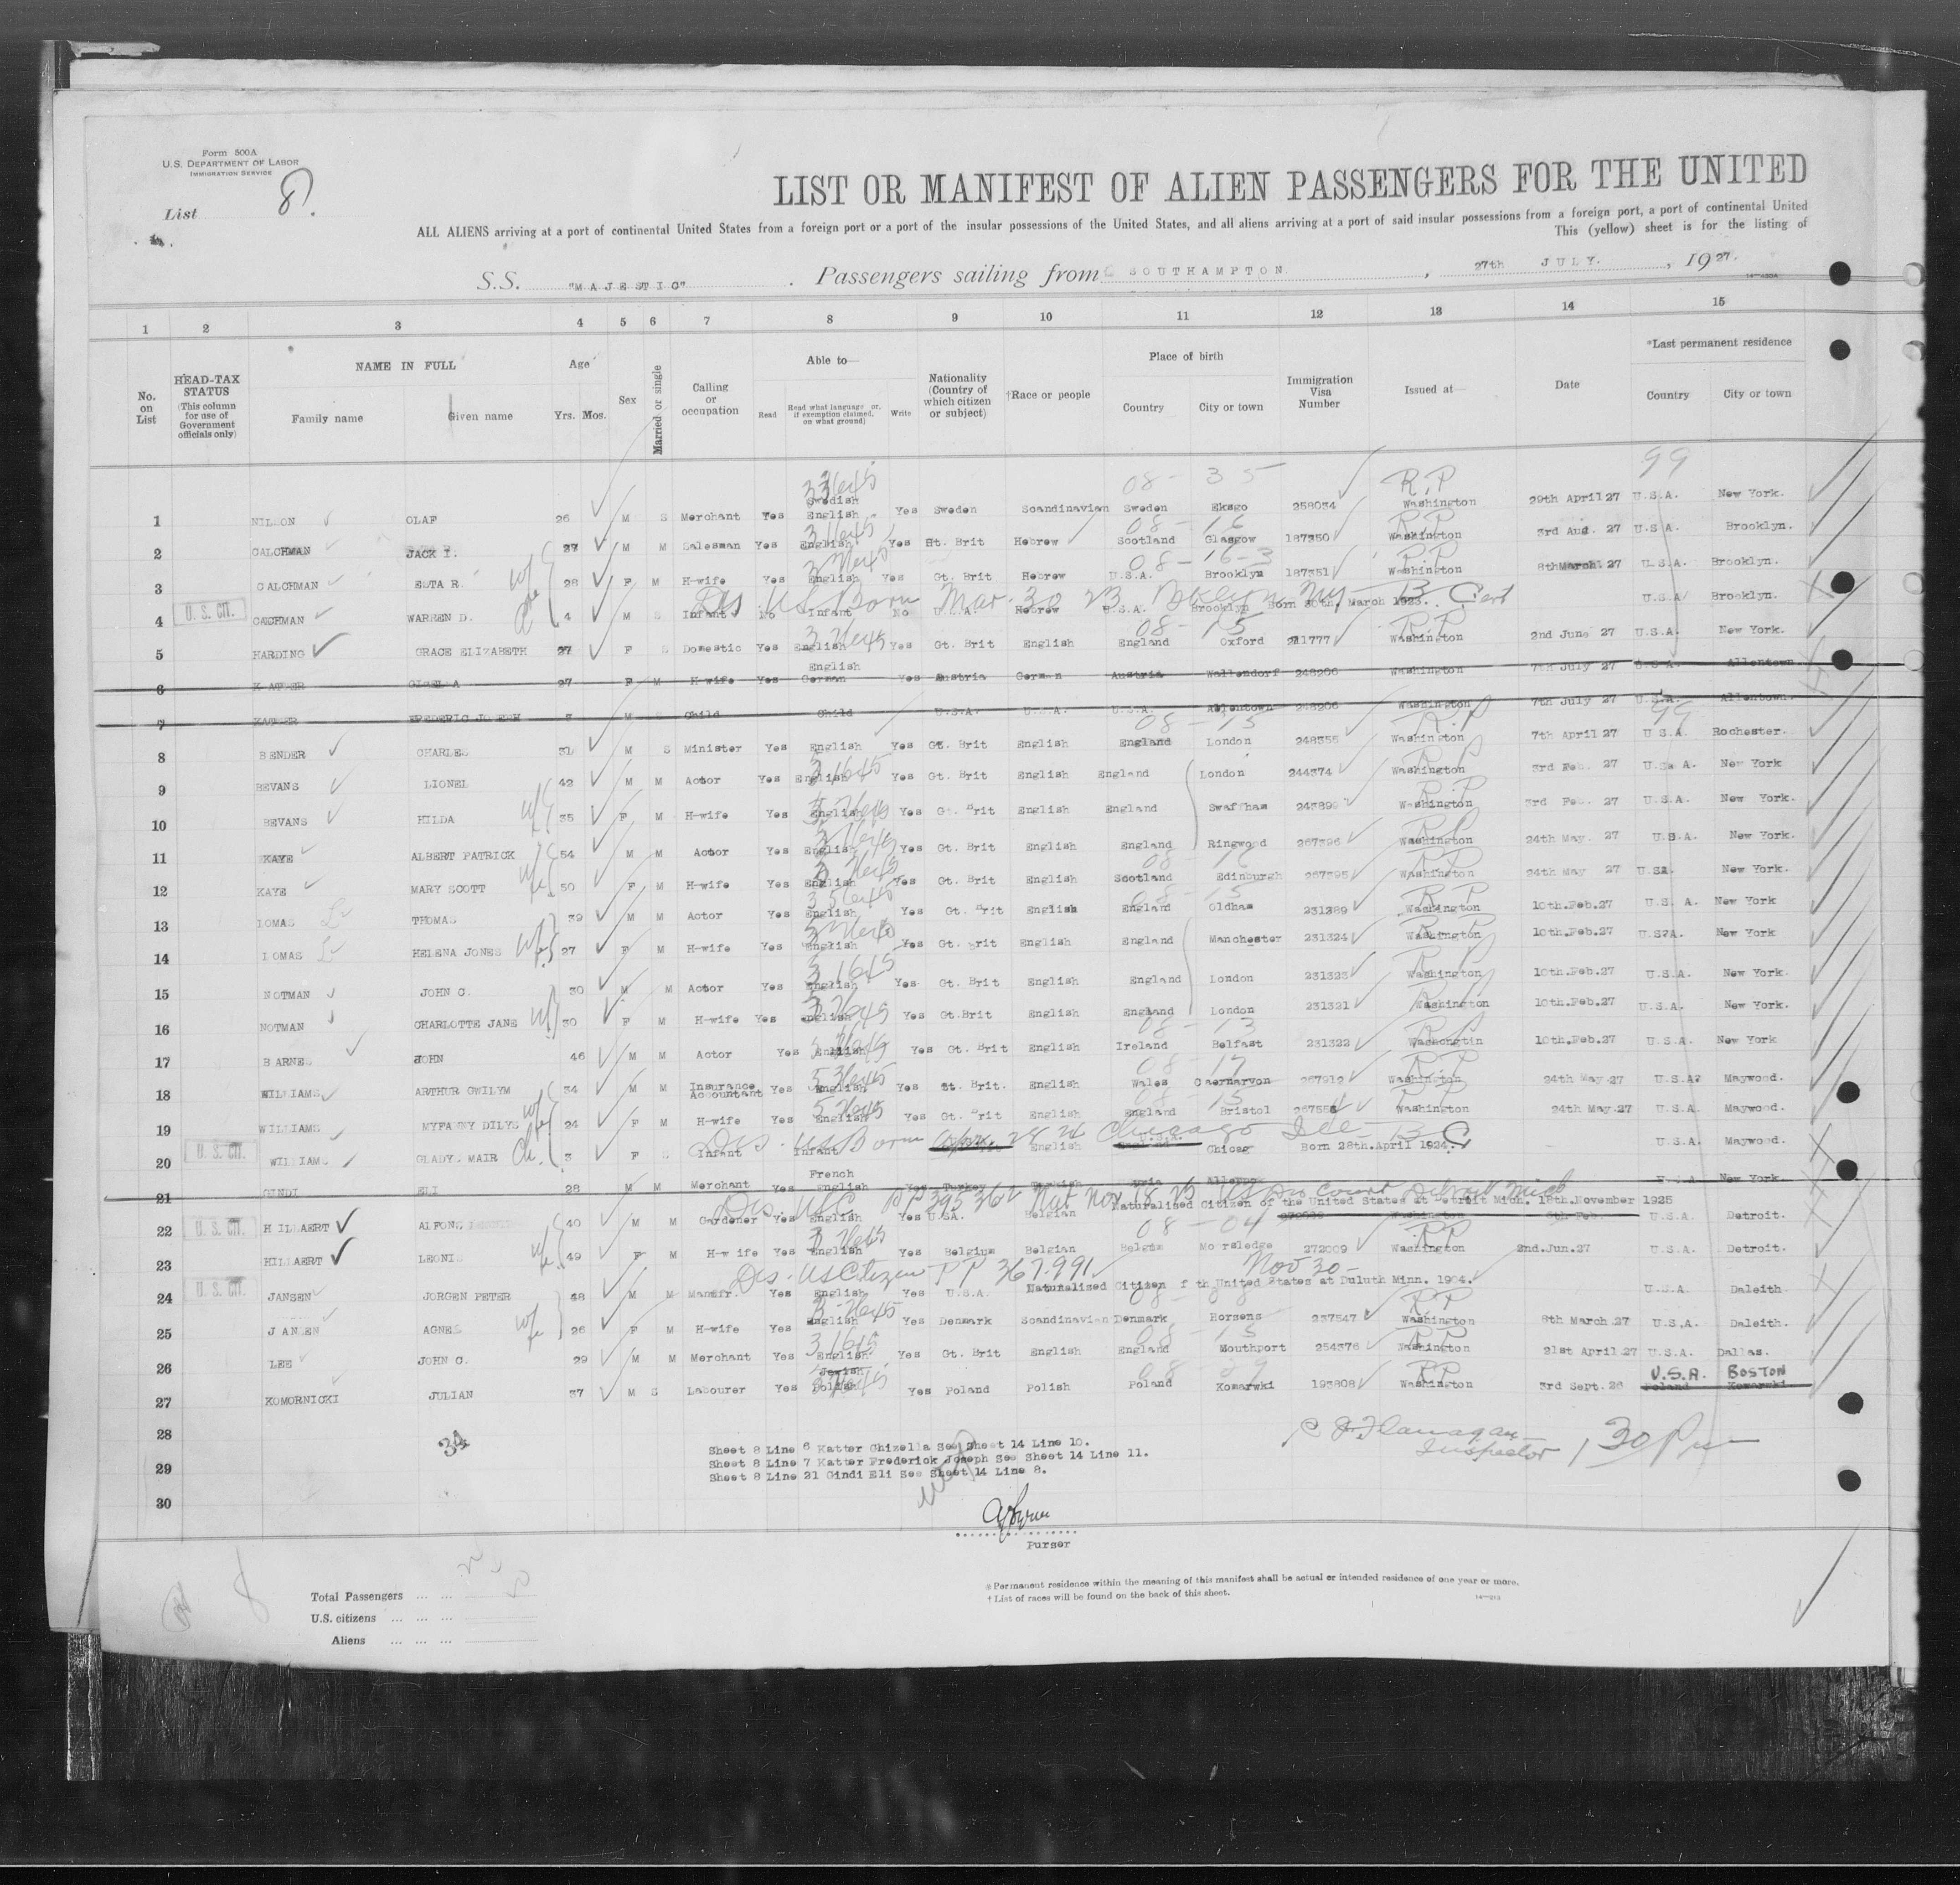 Form 500A
U.S. DEPARTMENT OF LABOR
IMMIGRATION SERVICE
List 8.
LIST OR MANIFEST OF ALIEN PASSENGERS FOR THE UNITED
ALL ALIENS arriving at a port of continental United States from a foreign port or a port of the insular possessions of the United States, and all aliens arriving at a port of said insular possessions from a foreign port, a port of continental United
This (yellow) sheet is for the listing of
S.S. "MAJESTIC" . Passengers sailing from SOUTHAMPTON. , 27th JULY. , 1927.
1 2 3 4 5 6 7 8 9 10 11 12 13 14 15
No. on List
HEAD-TAX STATUS (This column for use of Government officials only)
NAME IN FULL
Family name Given name
Age Yrs. Mos.
Sex
Married or single
Calling or occupation
Able to—
Read Read what language or, if exemption claimed, on what ground) Write
Nationality (Country of which citizen or subject)
†Race or people
Place of birth
Country City or town
Immigration Visa Number
Issued at—
Date
*Last permanent residence
Country City or town
99
1 NILSON OLAF 26 M S Merchant Yes Swedish English Yes Sweden Scandinavian Sweden Eksgo 258034 Washington 29th April 27 U.S.A. New York.
2 CALCHMAN JACK I. 27 M M Salesman Yes English Yes Gt. Brit Hebrew Scotland Glasgow 187350 Washington 3rd Aug. 27 U.S.A. Brooklyn.
3 CALCHMAN ESTA R. 28 F M H-wife Yes English Yes Gt. Brit Hebrew U.S.A. Brooklyn 187351 Washington 8th March 27 U.S.A. Brooklyn.
Dis US Born Mar. 30 23 Bklyn NY - B Cert
4 U.S. CIT. CALCHMAN WARREN D. 4 M S Infant No Infant No U.S.A. Hebrew U.S.A. Brooklyn Born 30th. March 1923. U.S.A. Brooklyn.
5 HARDING GRACE ELIZABETH 27 F S Domestic Yes English Yes Gt. Brit English England Oxford 211777 Washington 2nd June 27 U.S.A. New York.
6 KATTER GISELA 27 F M H-wife Yes English German Yes Austria German Austria Wallendorf 248206 Washington 7th July 27 U.S.A. Allentown
7 KATTER FREDERIC JOSEPH M Child Child U.S.A. U.S.A. U.S.A. Allentown 248206 Washington 7th July 27 U.S.A. Allentown.
8 BENDER CHARLES 31 M S Minister Yes English Yes Gt. Brit English England London 248355 Washington 7th April 27 U.S.A. Rochester.
9 BEVANS LIONEL 42 M M Actor Yes English Yes Gt. Brit English England London 244374 Washington 3rd Feb. 27 U.S.A. New York
10 BEVANS HILDA 35 F M H-wife Yes English Yes Gt. Brit English England Swaffham 243899 Washington 3rd Feb. 27 U.S.A. New York.
11 KAYE ALBERT PATRICK 54 M M Actor Yes English Yes Gt. Brit English England Ringwood 267396 Washington 24th May. 27 U.S.A. New York.
12 KAYE MARY SCOTT 50 F M H-wife Yes English Yes Gt. Brit English Scotland Edinburgh 267395 Washington 24th May 27 USA. New York.
13 LOMAS THOMAS 39 M M Actor Yes English Yes Gt. Brit English England Oldham 231289 Washington 10th.Feb.27 U.S. A. New York
14 LOMAS HELENA JONES 27 F M H-wife Yes English Yes Gt. Brit English England Manchester 231324 Washington 10th.Feb.27 U.S?A. New York
15 NOTMAN JOHN C. 30 M M Actor Yes English Yes Gt. Brit English England London 231323 Washington 10th.Feb.27 U.S.A. New York.
16 NOTMAN CHARLOTTE JANE 30 F M H-wife Yes English Yes Gt.Brit English England London 231321 Washington 10th.Feb.27 U.S.A. New York.
17 BARNES JOHN 46 M M Actor Yes English Yes Gt. Brit English Ireland Belfast 231322 Washongtin 10th.Feb.27 U.S.A. New York
18 WILLIAMS ARTHUR GWILYM 34 M M Insurance Accountant Yes English Yes Gt. Brit. English Wales Caernarvon 267912 Washington 24th May.27 U.S.A? Maywood.
19 WILLIAMS MYFANNY DILYS 24 F M H-wife Yes English Yes Gt. Brit English England Bristol 26755 Washington 24th May.27 U.S.A. Maywood.
Dis. US Born Apr. 28 24 Chicago Ill - B C
20 U.S. CIT. WILLIAMS GLADYS MAIR 3 F S Infant Infant English U.S.A. Chicag Born 28th.April 1924. U.S.A. Maywood.
21 GINDI ELI 28 M M Merchant Yes French English Yes Turkey Turkish Syria Aleppo U.S.A. New York
Dis. USC PP 395362 Nat Nov. 18 25 US Dis Court Detroit Mich
Naturalised Citizen of the United States at Detroit Mich. 18th.November 1925
22 U.S. CIT. HILLAERT ALFONS 40 M M Gardener Yes English Yes U.S.A. Belgian Washington 6th Feb. U.S.A. Detroit.
23 HILLAERT LEONIE 49 F M H-wife Yes English Yes Belgium Belgian Belgium Moorsledge 272009 Washington 2nd.Jun.27 U.S.A. Detroit.
Dis. US Citizen PP 367.991 Nov 30 -
24 U.S. CIT. JANSEN JORGEN PETER 48 M M Manufr. Yes English Yes U.S.A. Naturalised Citizen f th United States at Duluth Minn. 1904. U.S.A. Daleith
25 JANSEN AGNES 26 F M H-wife Yes English Yes Denmark Scandinavian Denmark Horsens 237547 Washington 8th March.27 U.S.A. Daleith.
26 LEE JOHN C. 29 M M Merchant Yes English Yes Gt. Brit English England Southport 254376 Washington 21st April.27 U.S.A. Dallas.
27 KOMORNICKI JULIAN 37 M S Labourer Yes Polish Yes Poland Polish Poland Komarwki 193808 Washington 3rd Sept. 26 U.S.A. BOSTON
28
29
30
34
Sheet 8 Line 6 Katter Ghizella See Sheet 14 Line 10.
Sheet 8 Line 7 Katter Frederick Joseph See Sheet 14 Line 11.
Sheet 8 Line 21 Gindi Eli See Sheet 14 Line 8.
C J Flanagan Inspector 1 30 Pm
Purser
Total Passengers ... ...
U.S. citizens ... ... ...
Aliens ... ... ...
* Permanent residence within the meaning of this manifest shall be actual or intended residence of one year or more.
† List of races will be found on the back of this sheet.